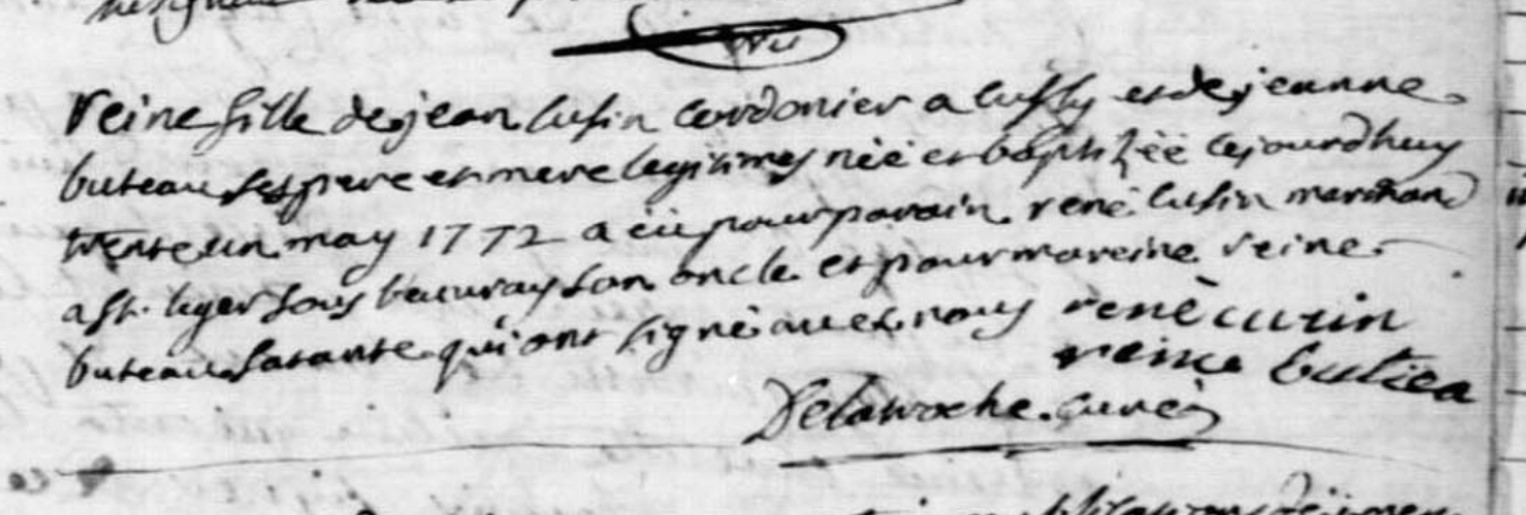 reine fille de jean lusin cordonier a cussy et de jeanne
buteau ses pere et mere legitimes néé et baptizéé cejourdhuy
trente un may 1772 a eü pour parain rené lusin marchand
a st. leger sous beuvray son oncle et pour mareine reine
buteau sa tante qui ont signé avec nous renè cusin
reine butiea
Delaroche curé